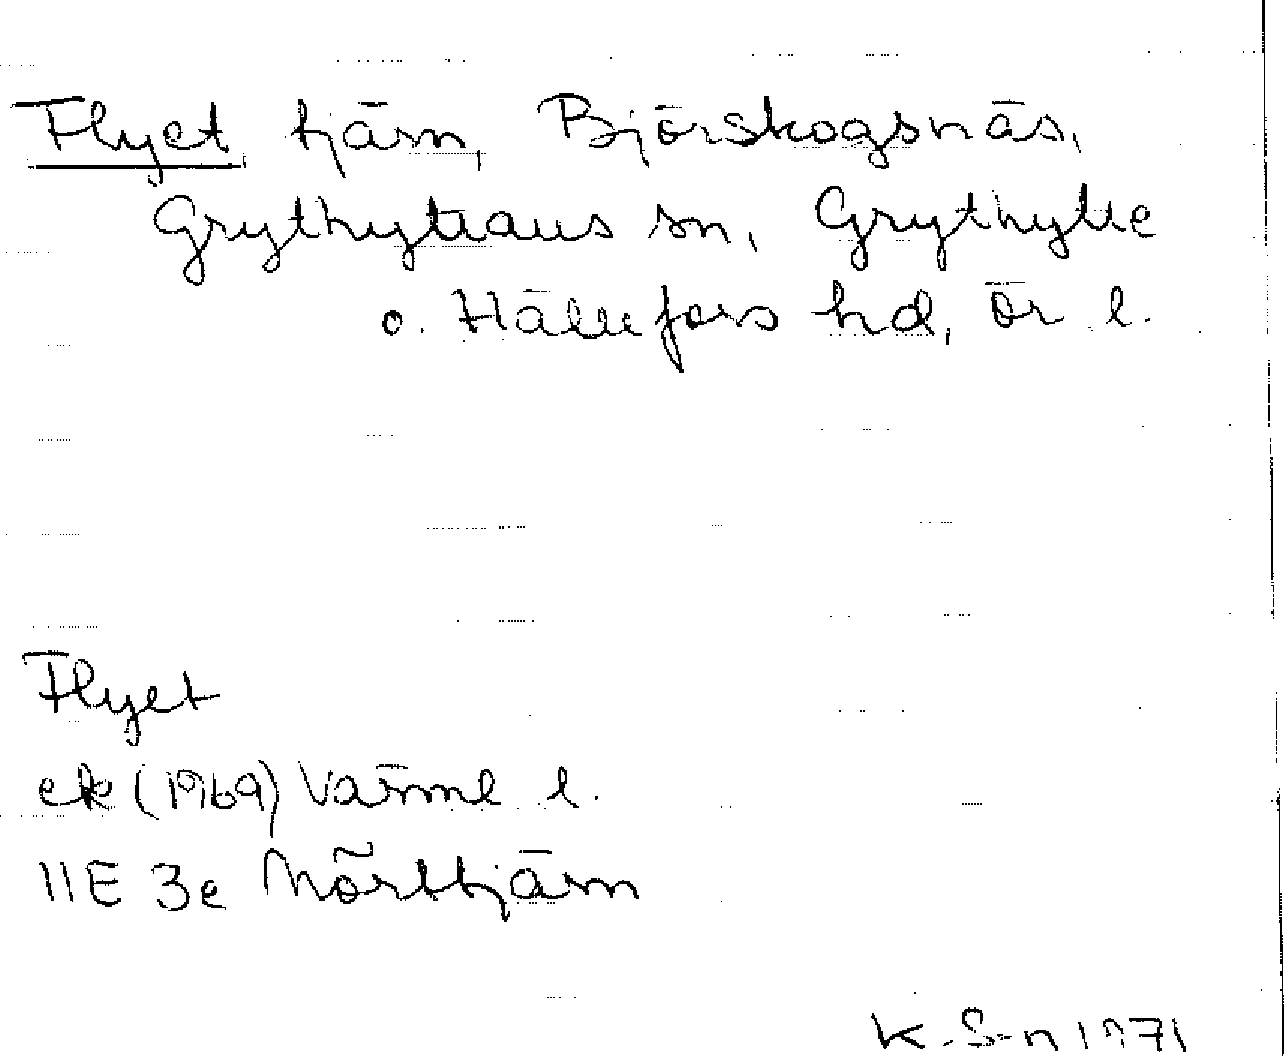 Flyet, tjärn, Björskogsnäs,
Grythyttans sn, Grythytte
o. Hällefors hd, Ör l.
Flyet
ek (1969) Värml l.
11E 3e Mörttjärn
K. S-n 1971